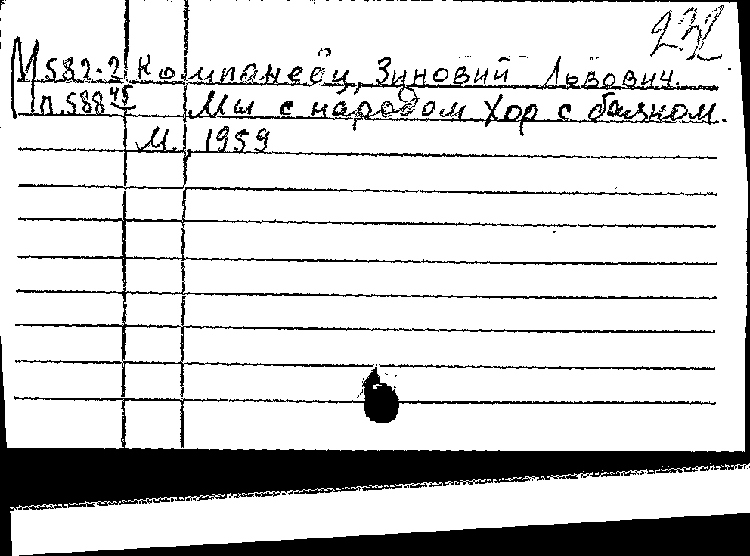 232
М 582-2 Компанеец, Зиновий Львович.
п.588 45 Мы с народом Хор с баяном.
М., 1959